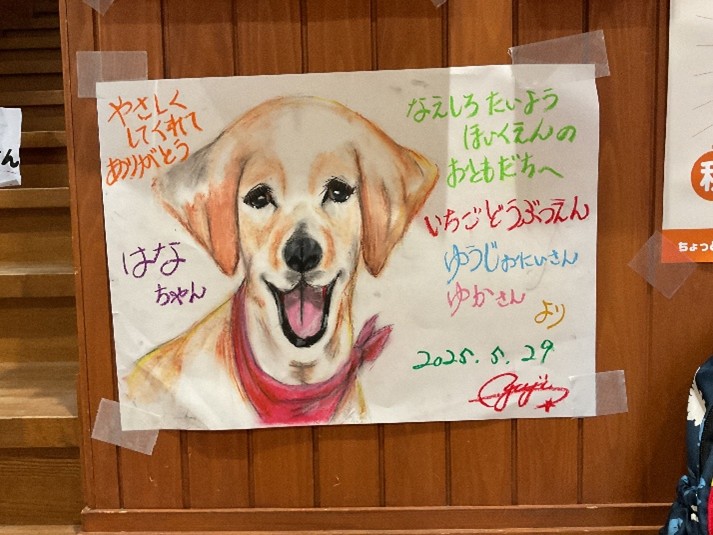 やさしく
してくれて
ありがとう
はな
ちゃん
なえしろ たいよう
ほいくえんの
おともだちへ
いちごどうぶつえん
ゆうじおにいさん
ゆかさん
より
2025.5.29
ん
ちょっ